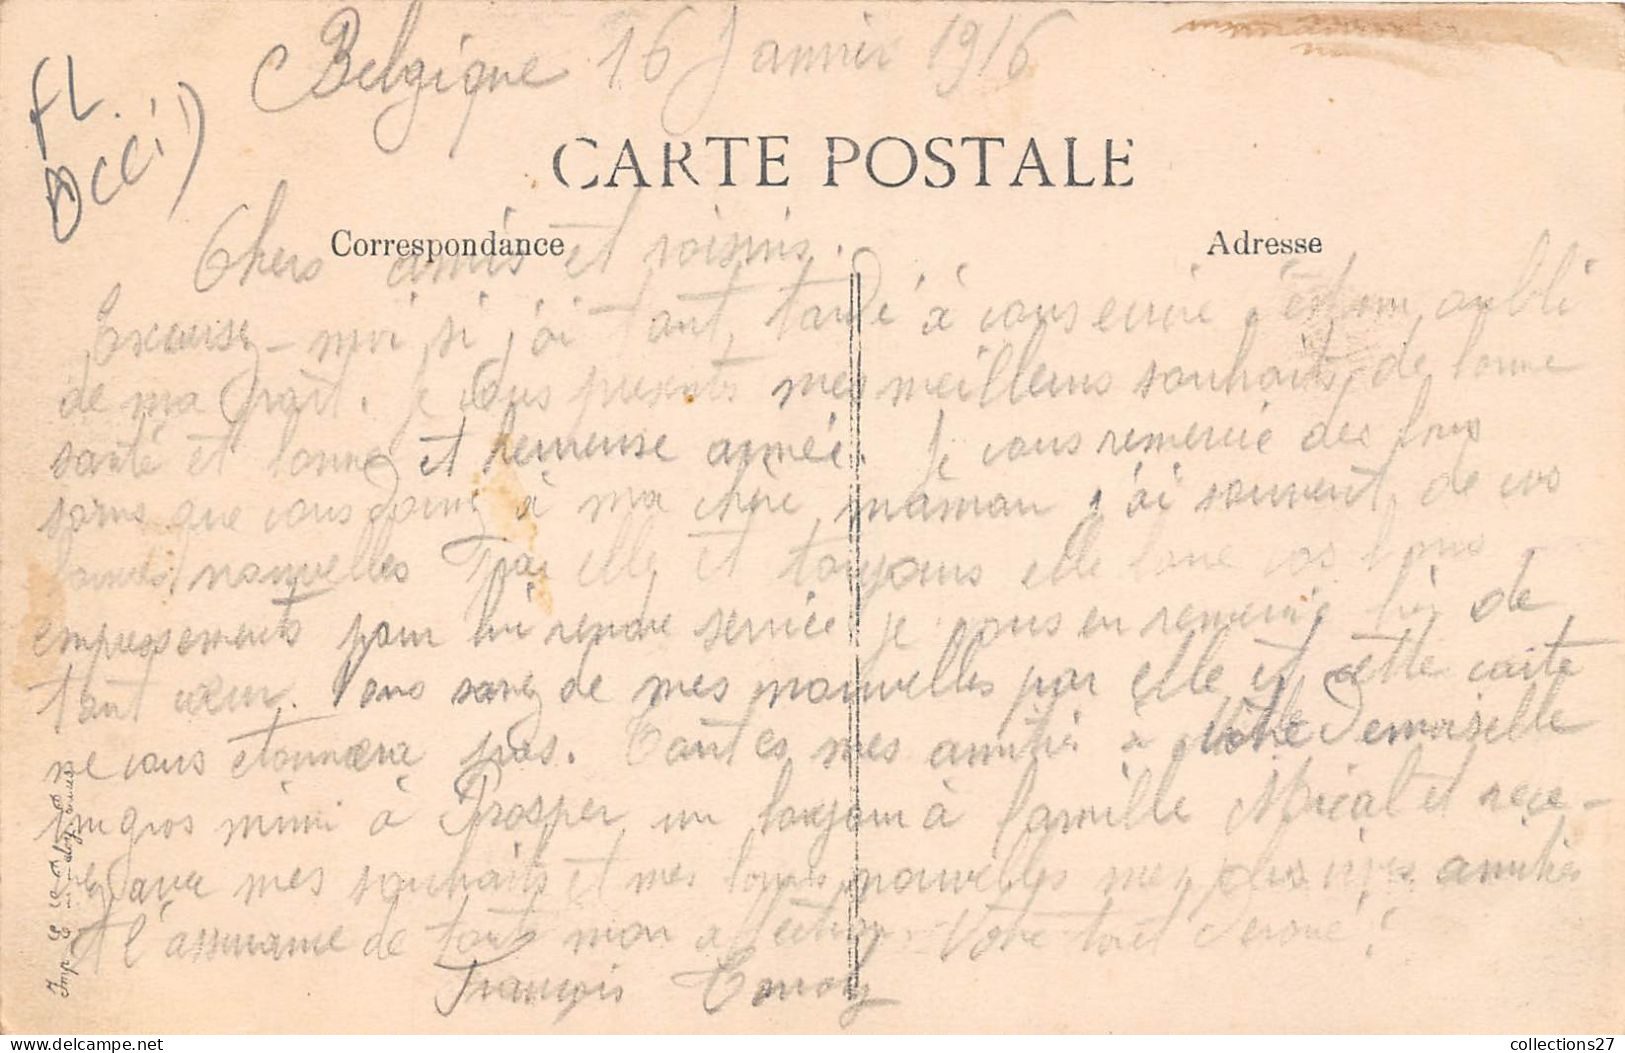 Belgique 16 Janvier 1916
FL.
OCCi)
CARTE POSTALE
Correspondance
Adresse
Chers amis et voisins.
Excusez-moi si j'ai tant tardé à vous écrire c'est un oubli
de ma part. Je vous présente mes meilleurs souhaits de bonne
santé et bonne et heureuse année. Je vous remercie des bons
soins que vous donnez à ma chère maman j'ai souvent de vos
bonnes nouvelles par elle et toujours elle loue vos bons
empressements pour lui rendre service je vous en remercie de
tant cœur. Vous savez de mes nouvelles par elle et cette carte
ne vous étonnera pas. Toutes mes amitiés à Votre Demoiselle
un gros mimi à Prosper, un bonjour à famille Micál et rece-
vez avec mes souhaits et mes bonnes nouvelles mes plus vives amitiés
et l'assurance de toute mon affection. Votre tout dévoué!
François
Imp.
collections27